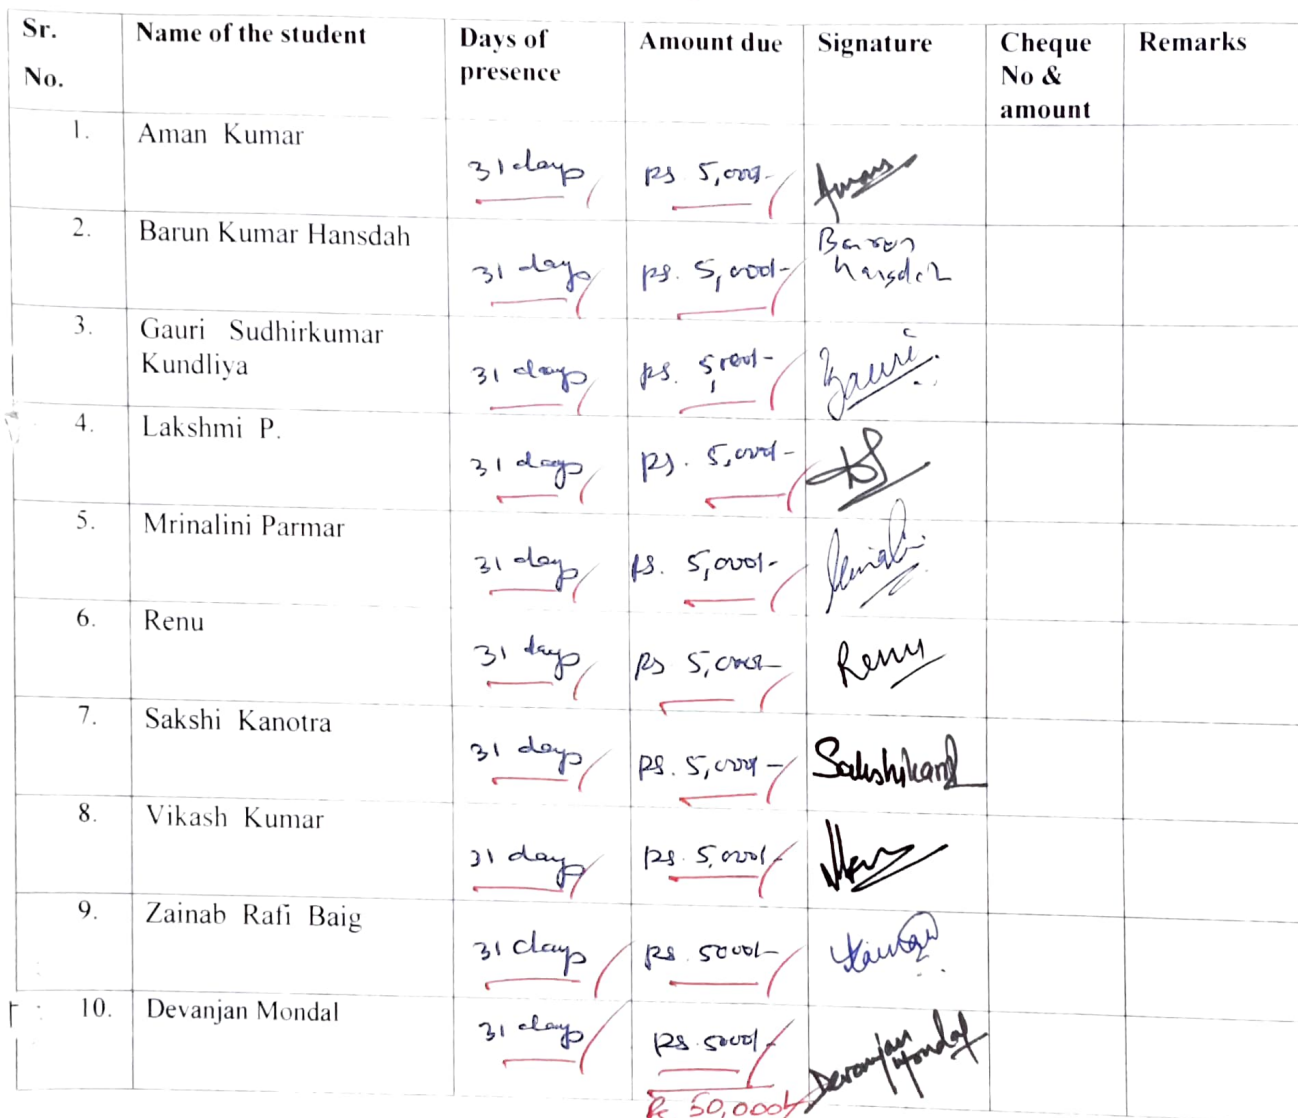 Sr. No. Name of the student Days of presence Amount due Signature Cheque No & amount Remarks
1. Aman Kumar 31 days Rs 5,000/- Aman
2. Barun Kumar Hansdah 31 days Rs. 5,000/- Barun Hansdah
3. Gauri Sudhirkumar Kundliya 31 days Rs. 5,000/- Gauri
4. Lakshmi P. 31 days Rs. 5,000/-
5. Mrinalini Parmar 31 days Rs. 5,000/-
6. Renu 31 days Rs 5,000/- Renu
7. Sakshi Kanotra 31 days Rs. 5,000/- Sakshi
8. Vikash Kumar 31 days Rs. 5,000/-
9. Zainab Rafi Baig 31 days Rs. 5000/- Zainab
10. Devanjan Mondal 31 days Rs. 5000/- Devanjan Mondal
Rs 50,000/-